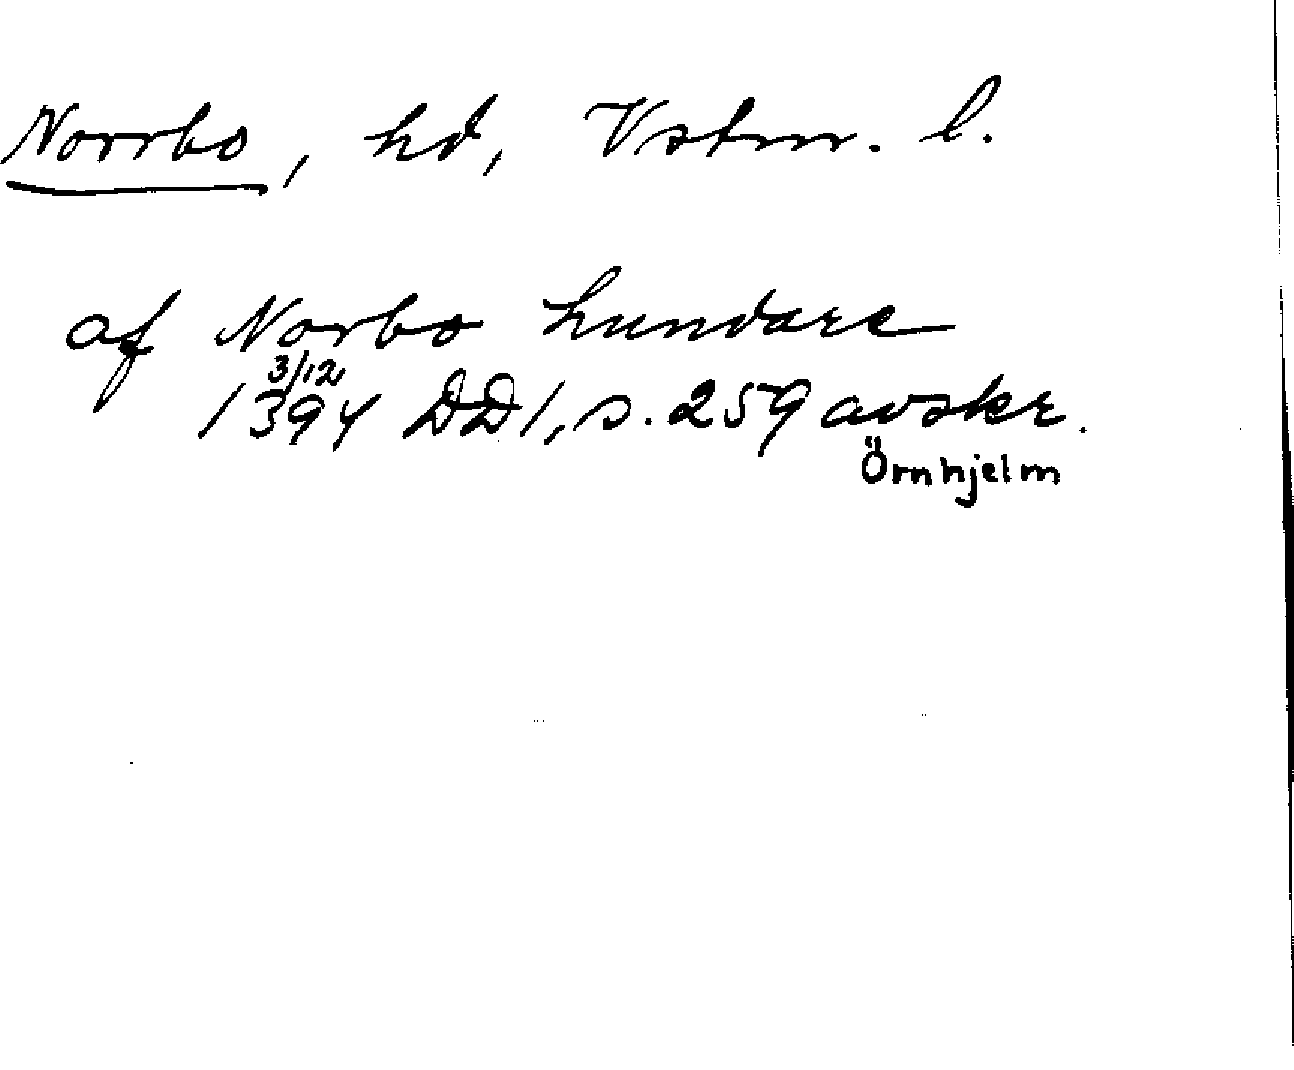 Norrbo, hd, Vstm. l.
af Norbo hundare
3/12
1394 DD1, s. 259 avskr.
Örnhjelm